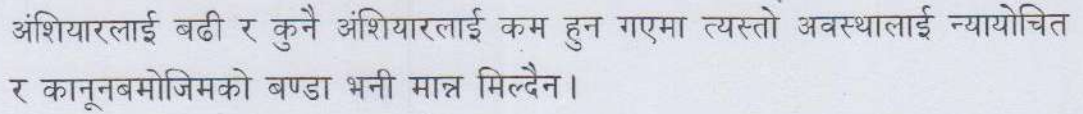 अंशियारलाई बढी र कुनै अंशियारलाई कम हुन गएमा त्यस्तो अवस्थालाई न्यायोचित
र कानूनबमोजिमको बण्डा भनी मान्न मिल्दैन।